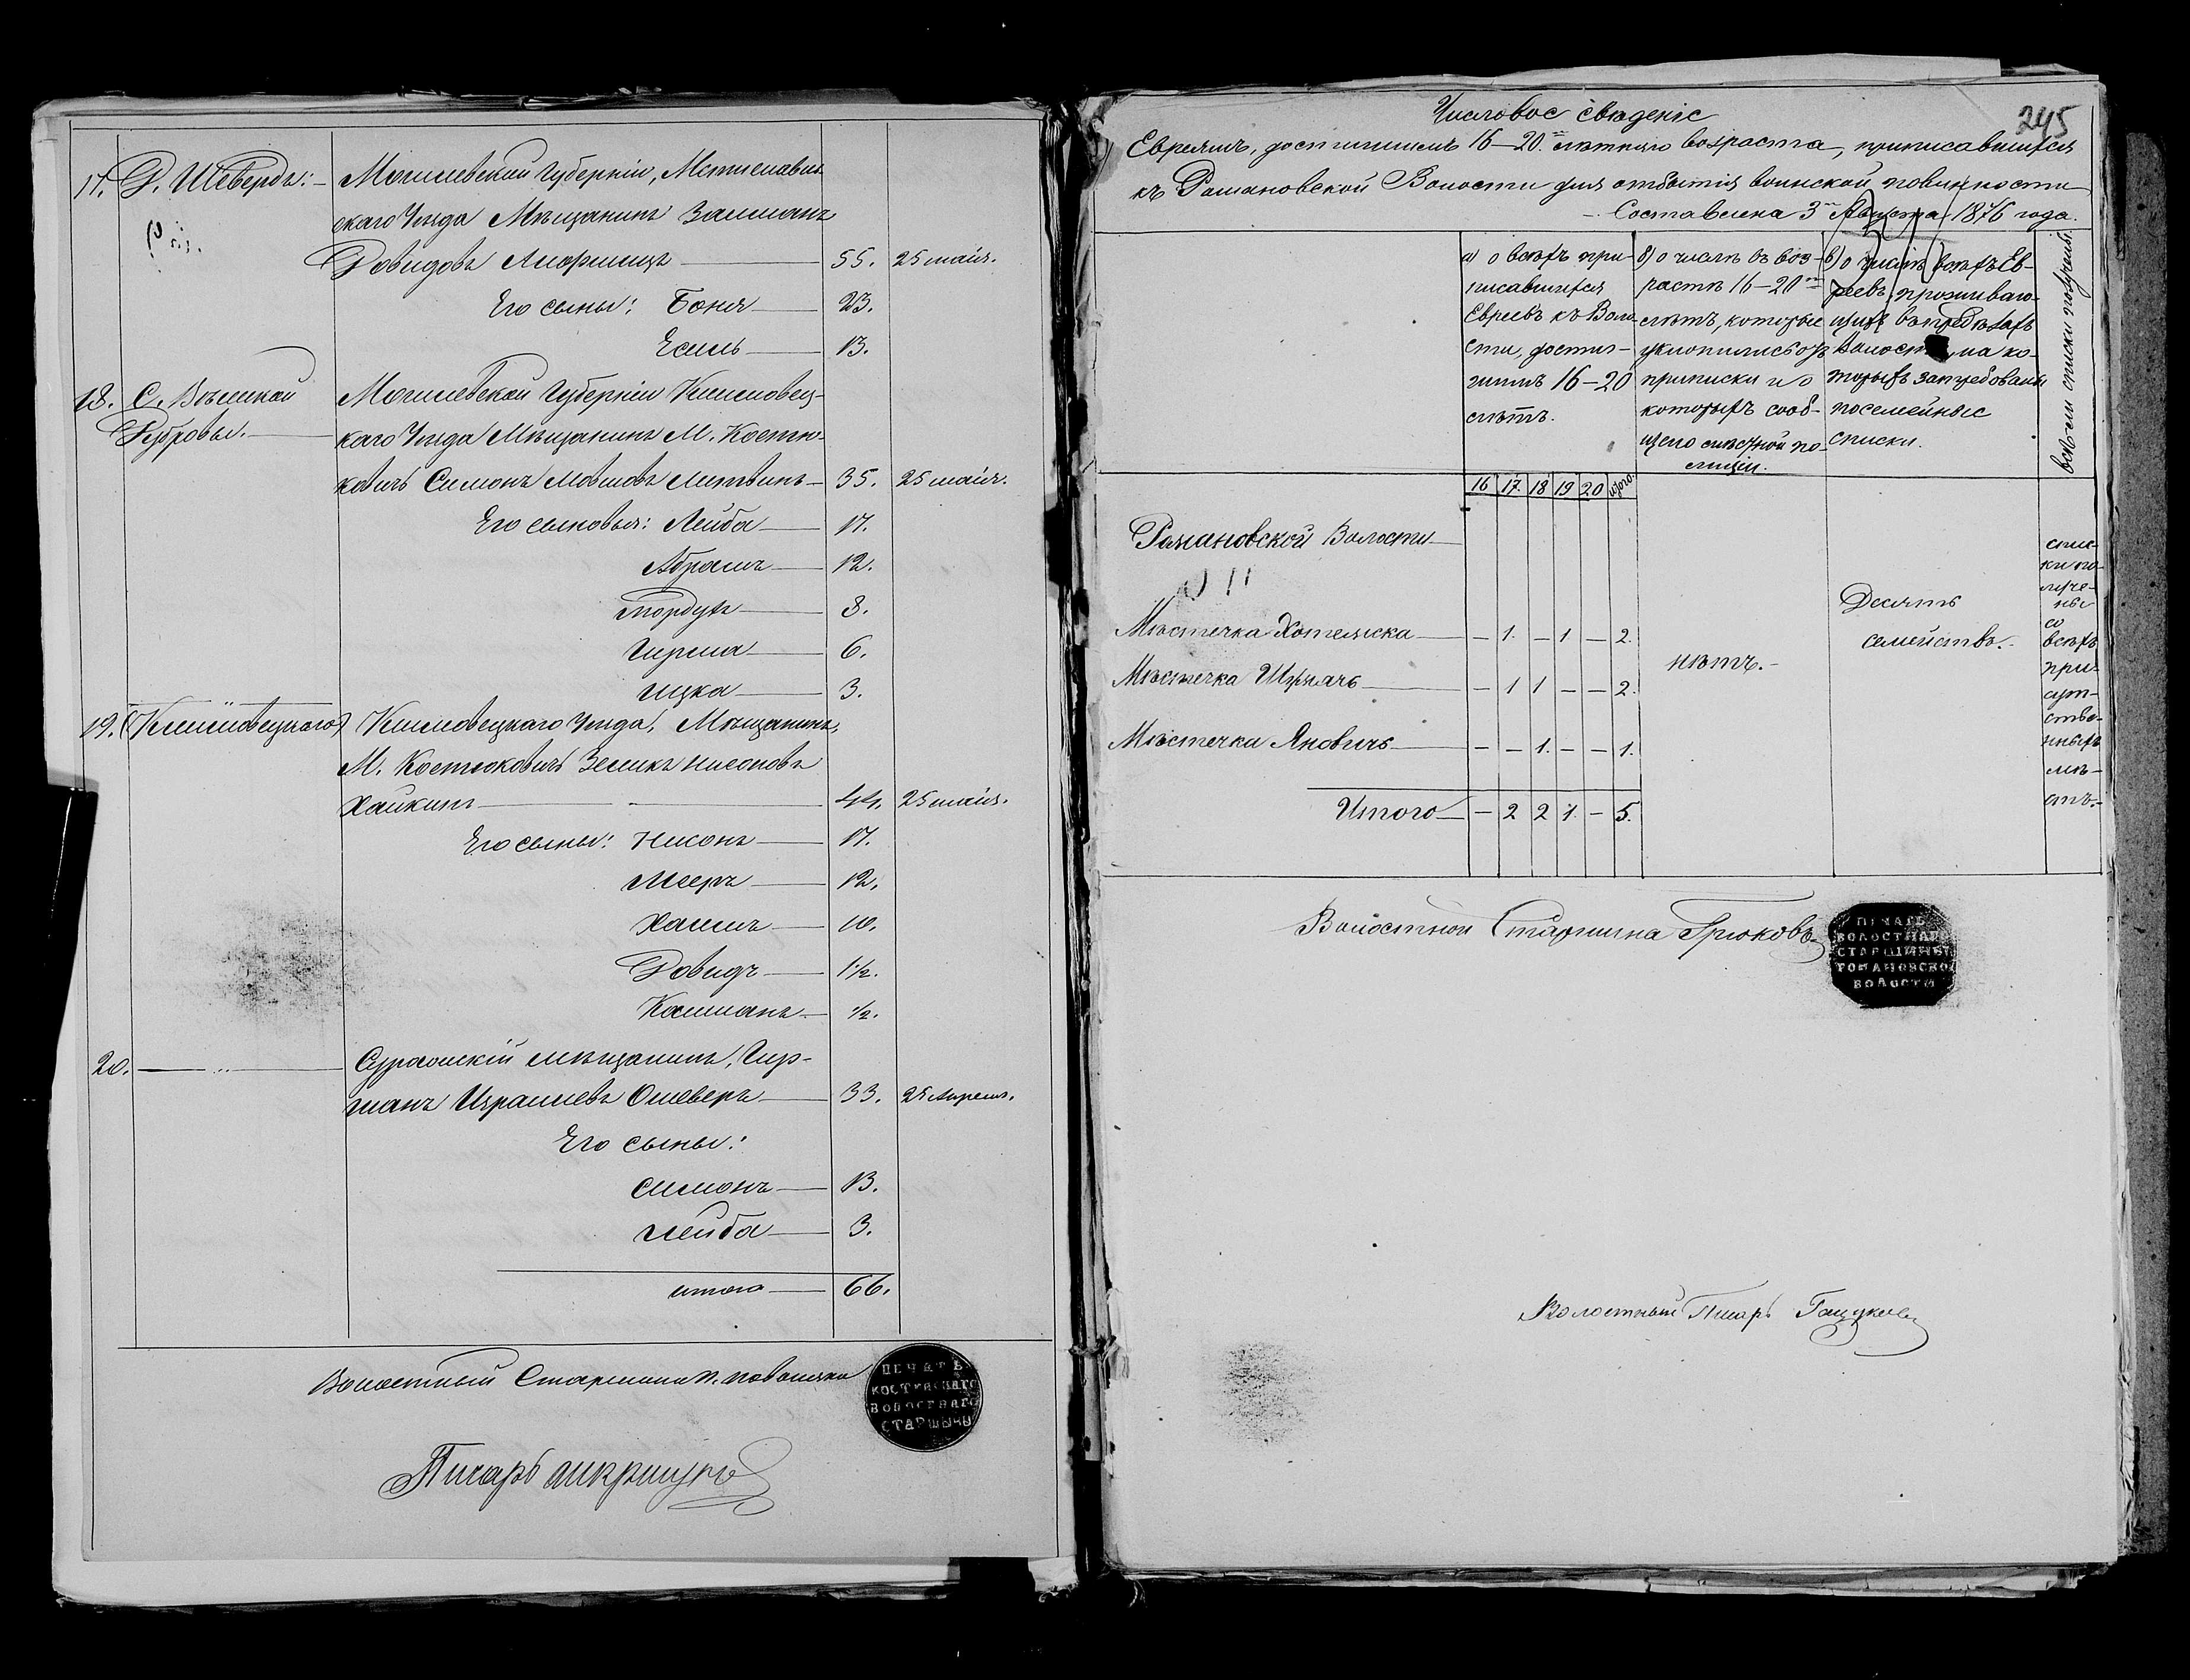 17. Д. Шеверды:— Могилевской Губерніи, Мстиславль
скаго Уѣзда Мѣщанинъ Залманъ
Довидовъ — 55. 25 маія.
Его сыны: Боня — 23.
Есель — 13.
18. С. Великой Могилевской Губерніи Климовец-
Дубровы. — каго Уѣзда Мѣщанинъ М. Костю-
ковичъ Симонъ Мовшовъ Литвинъ — 35. 25 маія.
Его сыновья: Лейба — 17.
Абрамъ — 12.
Мордухъ — 8.
Гирша — 6.
Ицка — 3.
19. (Климовецкаго) Климовецкаго Уѣзда, Мѣщанинъ,
М. Костюковичъ Зеликъ Нисоновъ
Хайкинъ — 44. 25 маія.
Его сыны: Нисонъ — 17.
Мееръ — 12.
Хаимъ — 10.
Довидъ — 1½.
Калманъ — ½.
20. — " — Суражскій мѣщанинъ, Гир-
шанъ Израилевъ Ошеверъ — 33. 25 Апреля.
Его сыны:
Симонъ — 13.
Лейба — 3.
итого — 66.
Волостный Старшина
ПЕЧАТЬ
ВОЛОСТНАГО
СТАРШИНЫ
Писарь
245
Числовое сведеніе
Евреямъ, достигшимъ 16—20. лѣтняго возраста, приписавшихся
къ Романовской Волости для отбытія воинской повинности
Составлена 3 Августа 1876 года.
а) о всѣхъ при-
писавшихся
Евреевъ къ Воло-
сти, достиг-
шимъ 16—20
лѣтъ.
б) о числѣ въ воз-
растѣ 16—20
лѣтъ, которые
уклонились отъ
приписки и о
которыхъ сооб-
щено мѣстной по-
лиціи.
в) о числѣ всѣхъ Ев-
реевъ, проживаю-
щихъ въ пределахъ
Волости, на ко-
торыхъ затребованы
посемейные
списки.
всѣ ли списки получены.
16 17 18 19 20 итого.
Романовской Волости —
Мѣстечка Хотемска — — 1. — 1 — 2.
Мѣстечка — — 1 1 — — 2.
Мѣстечка Яновичъ — — — 1. — — 1.
Итого — — 2 2 1. — 5.
нѣтъ.—
Десять
семействъ.—
спис-
ки по-
луче-
ны
со
всѣхъ
при-
сут-
стве-
нныхъ
мѣ-
стъ.—
Волостной Старшина Грюковъ
ПЕЧАТЬ
ВОЛОСТНАГО
СТАРШИНЫ
РОМАНОВСКОЙ
ВОЛОСТИ
Волостный Писарь